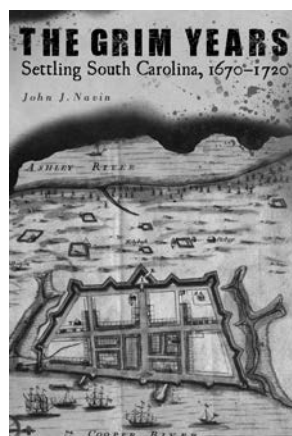 THE GRIM YEARS
Settling South Carolina, 1670–1720
John J. Navin
ASHLEY RIVER
COOPER RIVER